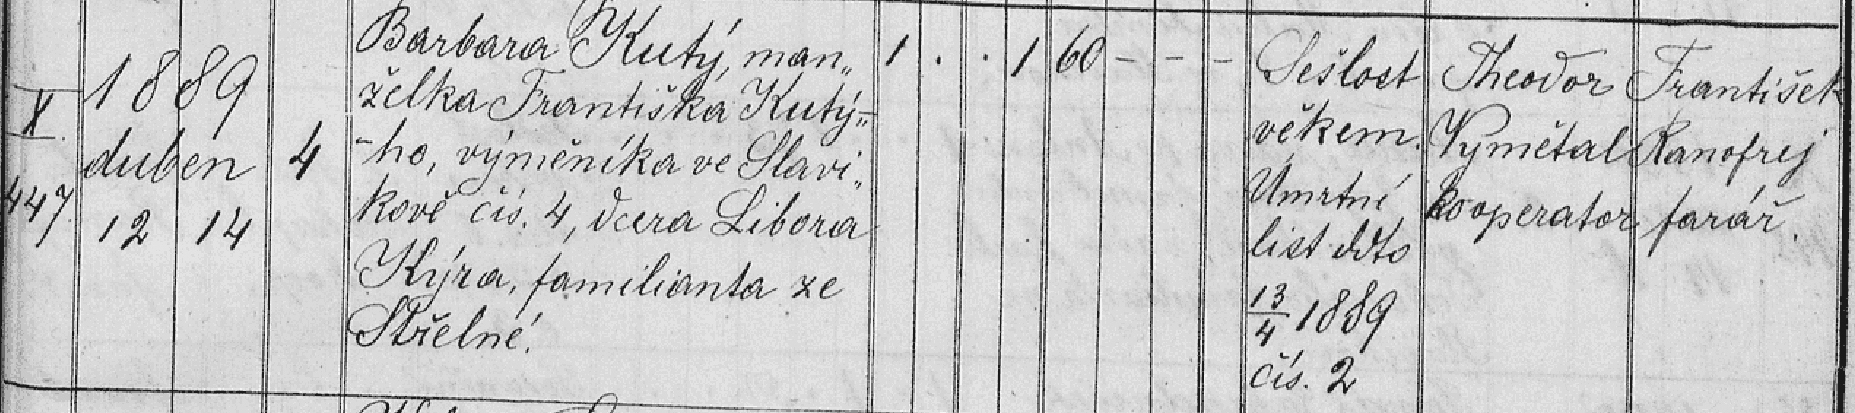 X.
447.
1889
duben
12 14
4
Barbara Kutý, man„
želka Františka Kutý„
-ho, výměníka ve Slavi„
kově čís. 4, dcera Libora
Kýra, familianta ze
Střelné.
1 . . 1 60 - - -
Sešlost
věkem.
Úmrtní
list ddto
13/4 1889
čís. 2
Theodor
Vymětal
kooperator
František
Kanofrej
farář.